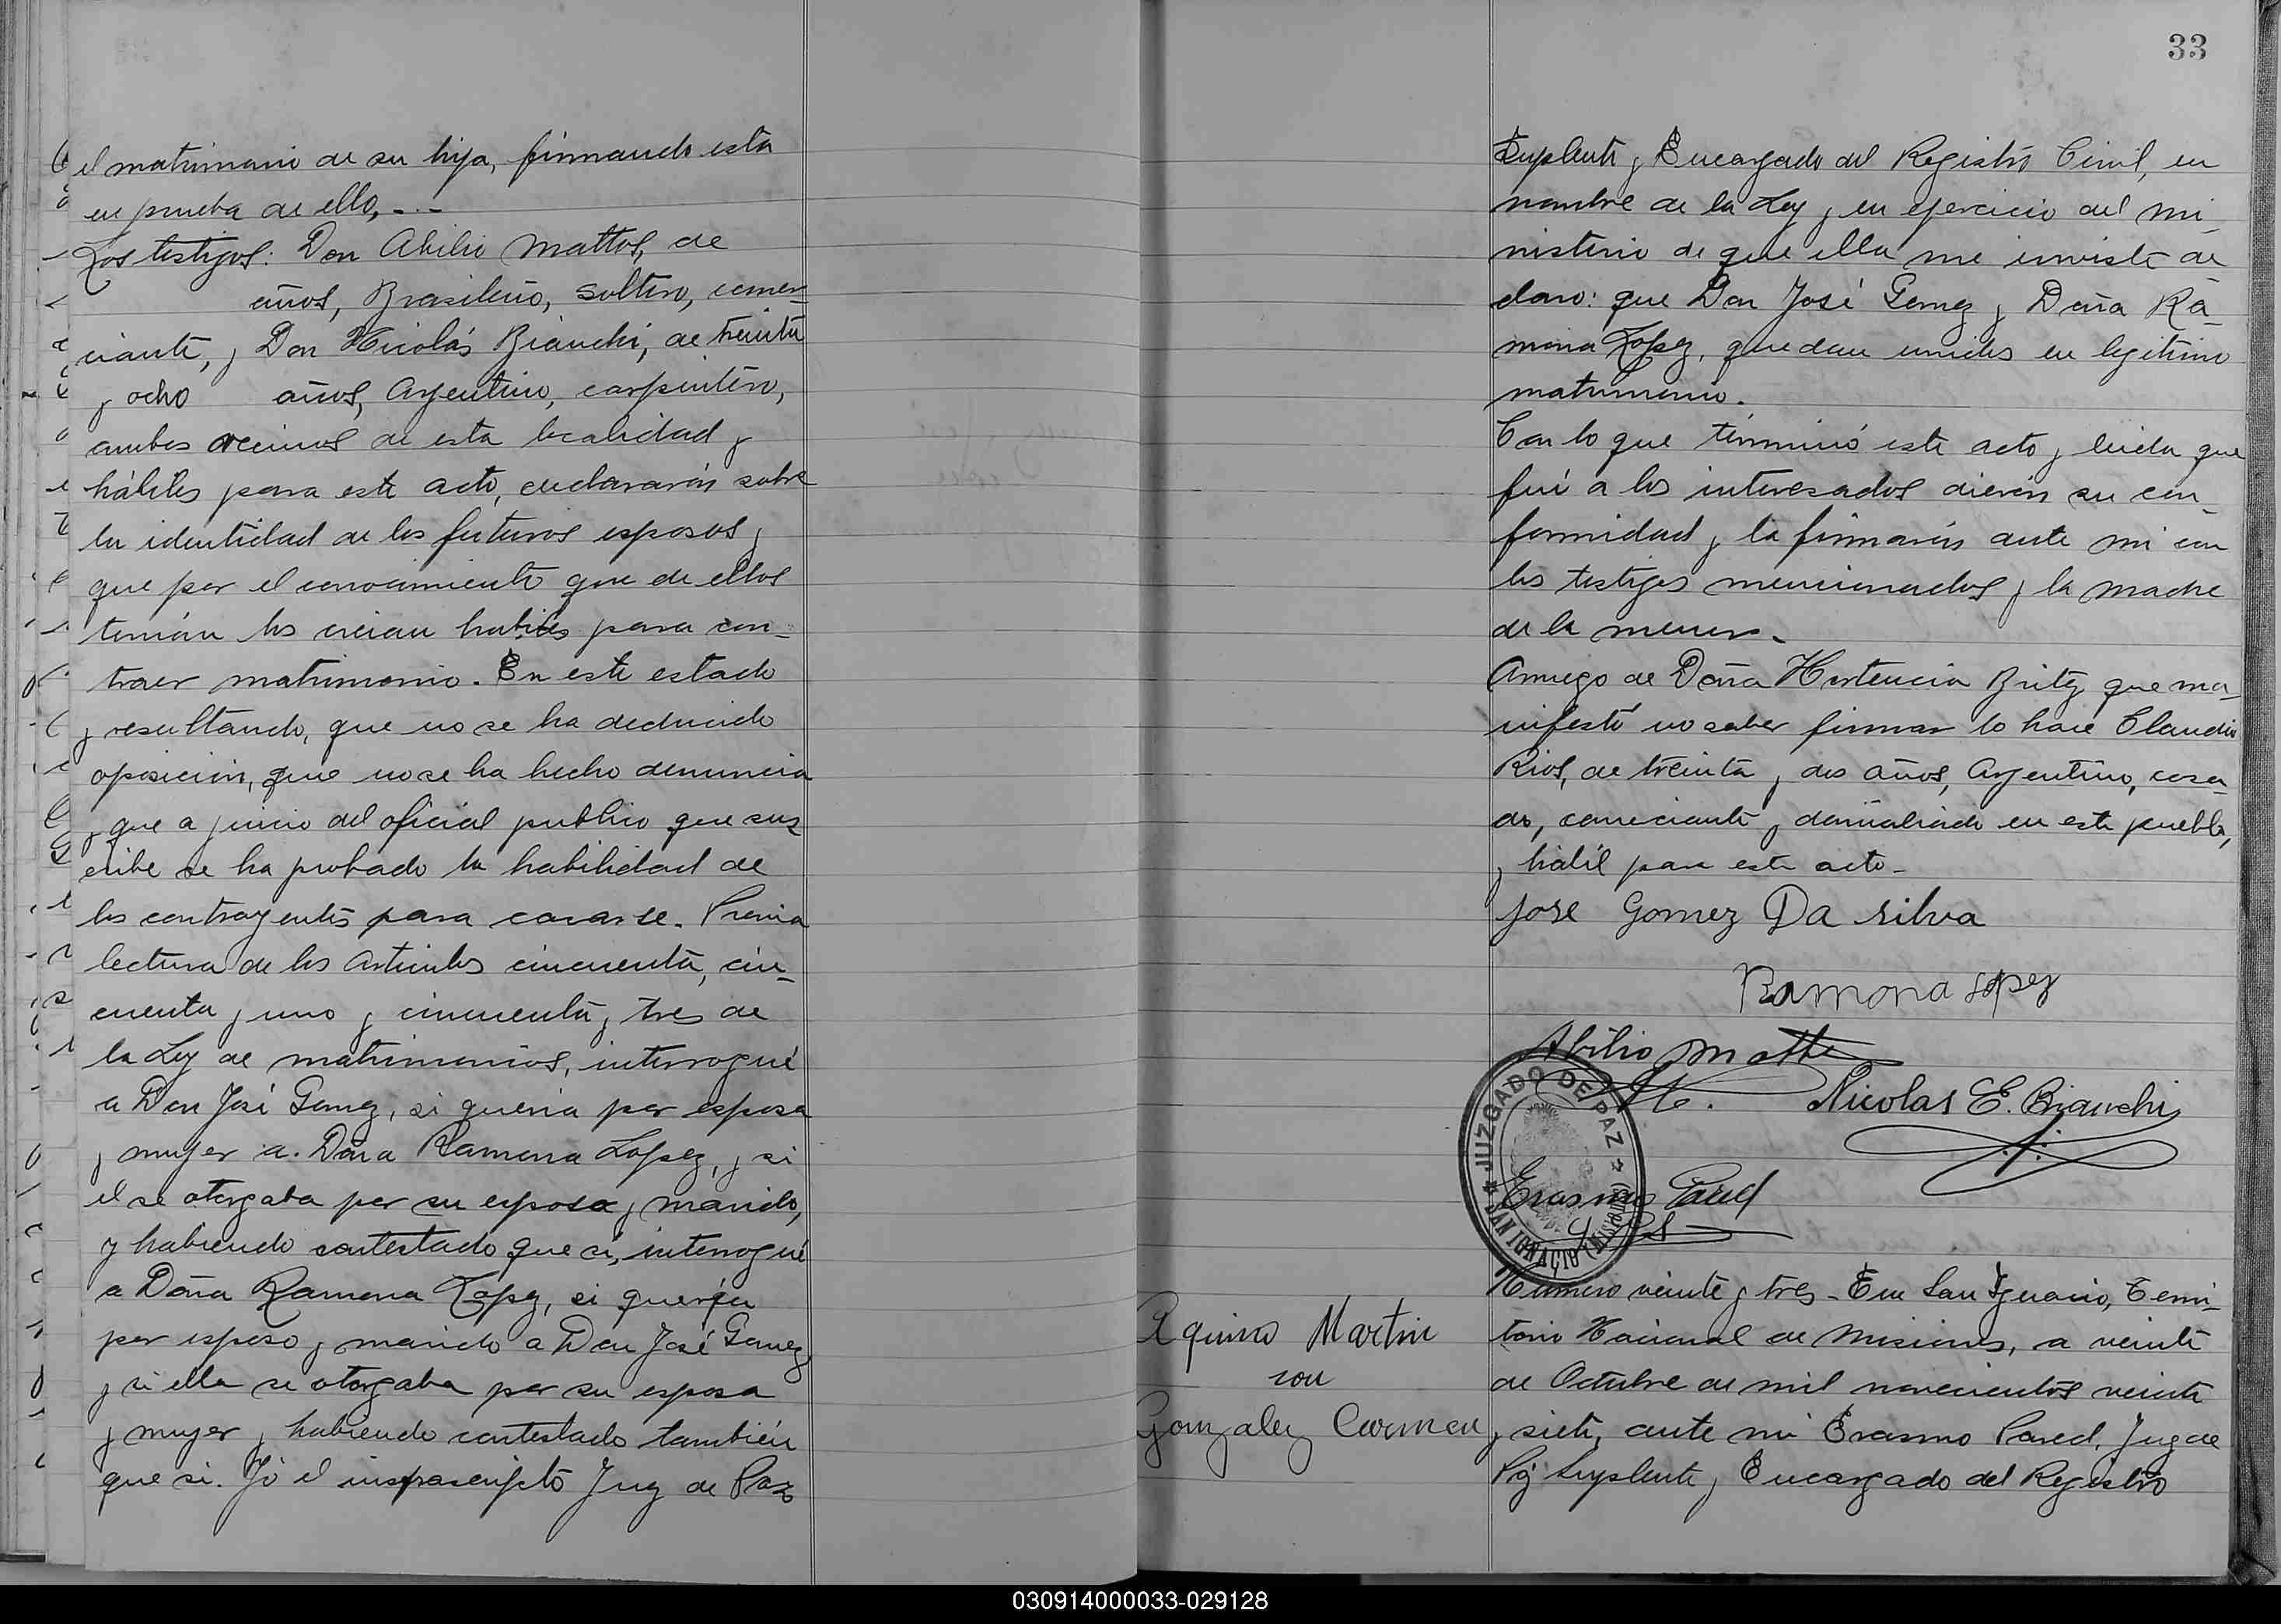 el matrimonio de su hija, firmando esta
en prueba de ello, -.-
Los testigos: Don Abilio Mattos, de
años, Brasileño, soltero, comer-
ciante, y Don Nicolás Bianchi, de treinta
y ocho años, Argentino, carpintero,
ambos vecinos de esta localidad y
hábiles para este acto, declararón sobre
la identidad de los futuros esposos y
que por el conocimiento que de ellos
tenían los creian habiles para con-
traer matrimonio. En este estado
y resultando, que no se ha deducido
oposicion, que no se ha hecho denuncia
y que a juicio del oficial publico que sus
cribe se ha probado la habilidad de
los contrayentes para casarse. Previa
lectura de los articulos cincuenta, cin-
cuenta y uno y cincuenta y tres de
la Ley de matrimonios, interrogué
a Don José Gomez, si queria por esposa
y mujer a. Doña Ramona Lopez, y si
el se otorgaba por su esposo y marido,
y habiendo contestado que sí, interrogué
a Doña Ramona Lopez, si quería
por esposo y marido a Don José Gomez,
y si ella se otorgaba por su esposa
y mujer y habiendo contestado también
que si. Yó el infrascripto Juez de Paz
33
Suplente y Encargado del Registro Civil, en
nombre de la Ley y en ejercicio del mi-
nisterio de que ella me inviste de
claro: que Don José Gomez y Doña Ra-
mona Lopez, quedan unidos en legitimo
matrimonio.
Con lo que terminó este acto y leida que
fué a los interesados dierón su con-
formidad y la firmarón ante mi con
los testigos mencionados y la madre
de la menor.-
Arruego de Doña Hortencia Britez que ma-
nifestó no saber firmar lo hace Claudio
Rios, de treinta y dos años, Argentino, casa-
do, comerciante y domiciliado en este pueblo,
y hábil para este acto-
Jose Gomez Da silva
Ramona Lopez
Abilio Matto
Nicolas E. Bianchi
JUZGADO DE PAZ
SAN IGNACIO (MISIONES)
Erasmo Pared
Número veinte y tres - En San Ignacio, Terri-
torio Nacional de Misiones, a veinte
de Octubre de mil novecientos veinte
y siete, ante mi Erasmo Pared, Juez de
Paz Suplente y Encargado del Registro
Aquino Martin
con
Gonzalez Carmen
030914000033-029128